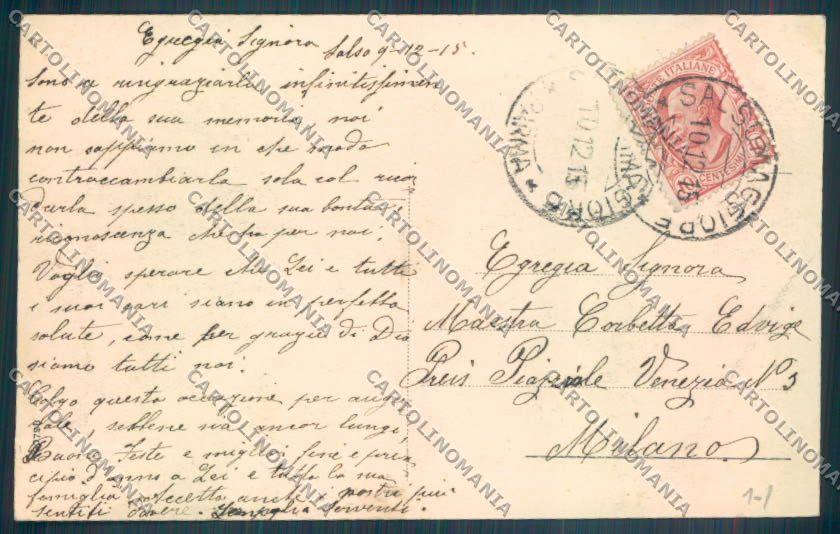 Egregia Signora Salso 9-12-15.
Sono a ringraziarla infinitissimen
te della sua memoria, noi
non sappiamo in che modo
contraccambiarla sola col ricor
darla spesso della sua bontà
riconoscenza che ha per noi.
Voglio sperare che Lei e tutti
i suoi cari siano in perfetta
salute, come per grazie di Dio
siamo tutti noi.
Colgo questa occasione per augu
rale, sebbene sia ancor lungi,
Buone Feste e miglior fine e prin
cipio d'anno a Lei e tutta la sua
famiglia. Accetta anche i nostri più
sentiti
POSTE ITALIANE
CENTESIMI
SALSOMAGGIORE
10.12.15
PARMA
10.12.15
Egregia Signora
Maestra Corbetta Edvige
Preis Piazzale Venezia N° 3
Milano
1-1
CARTOLINOMANIA